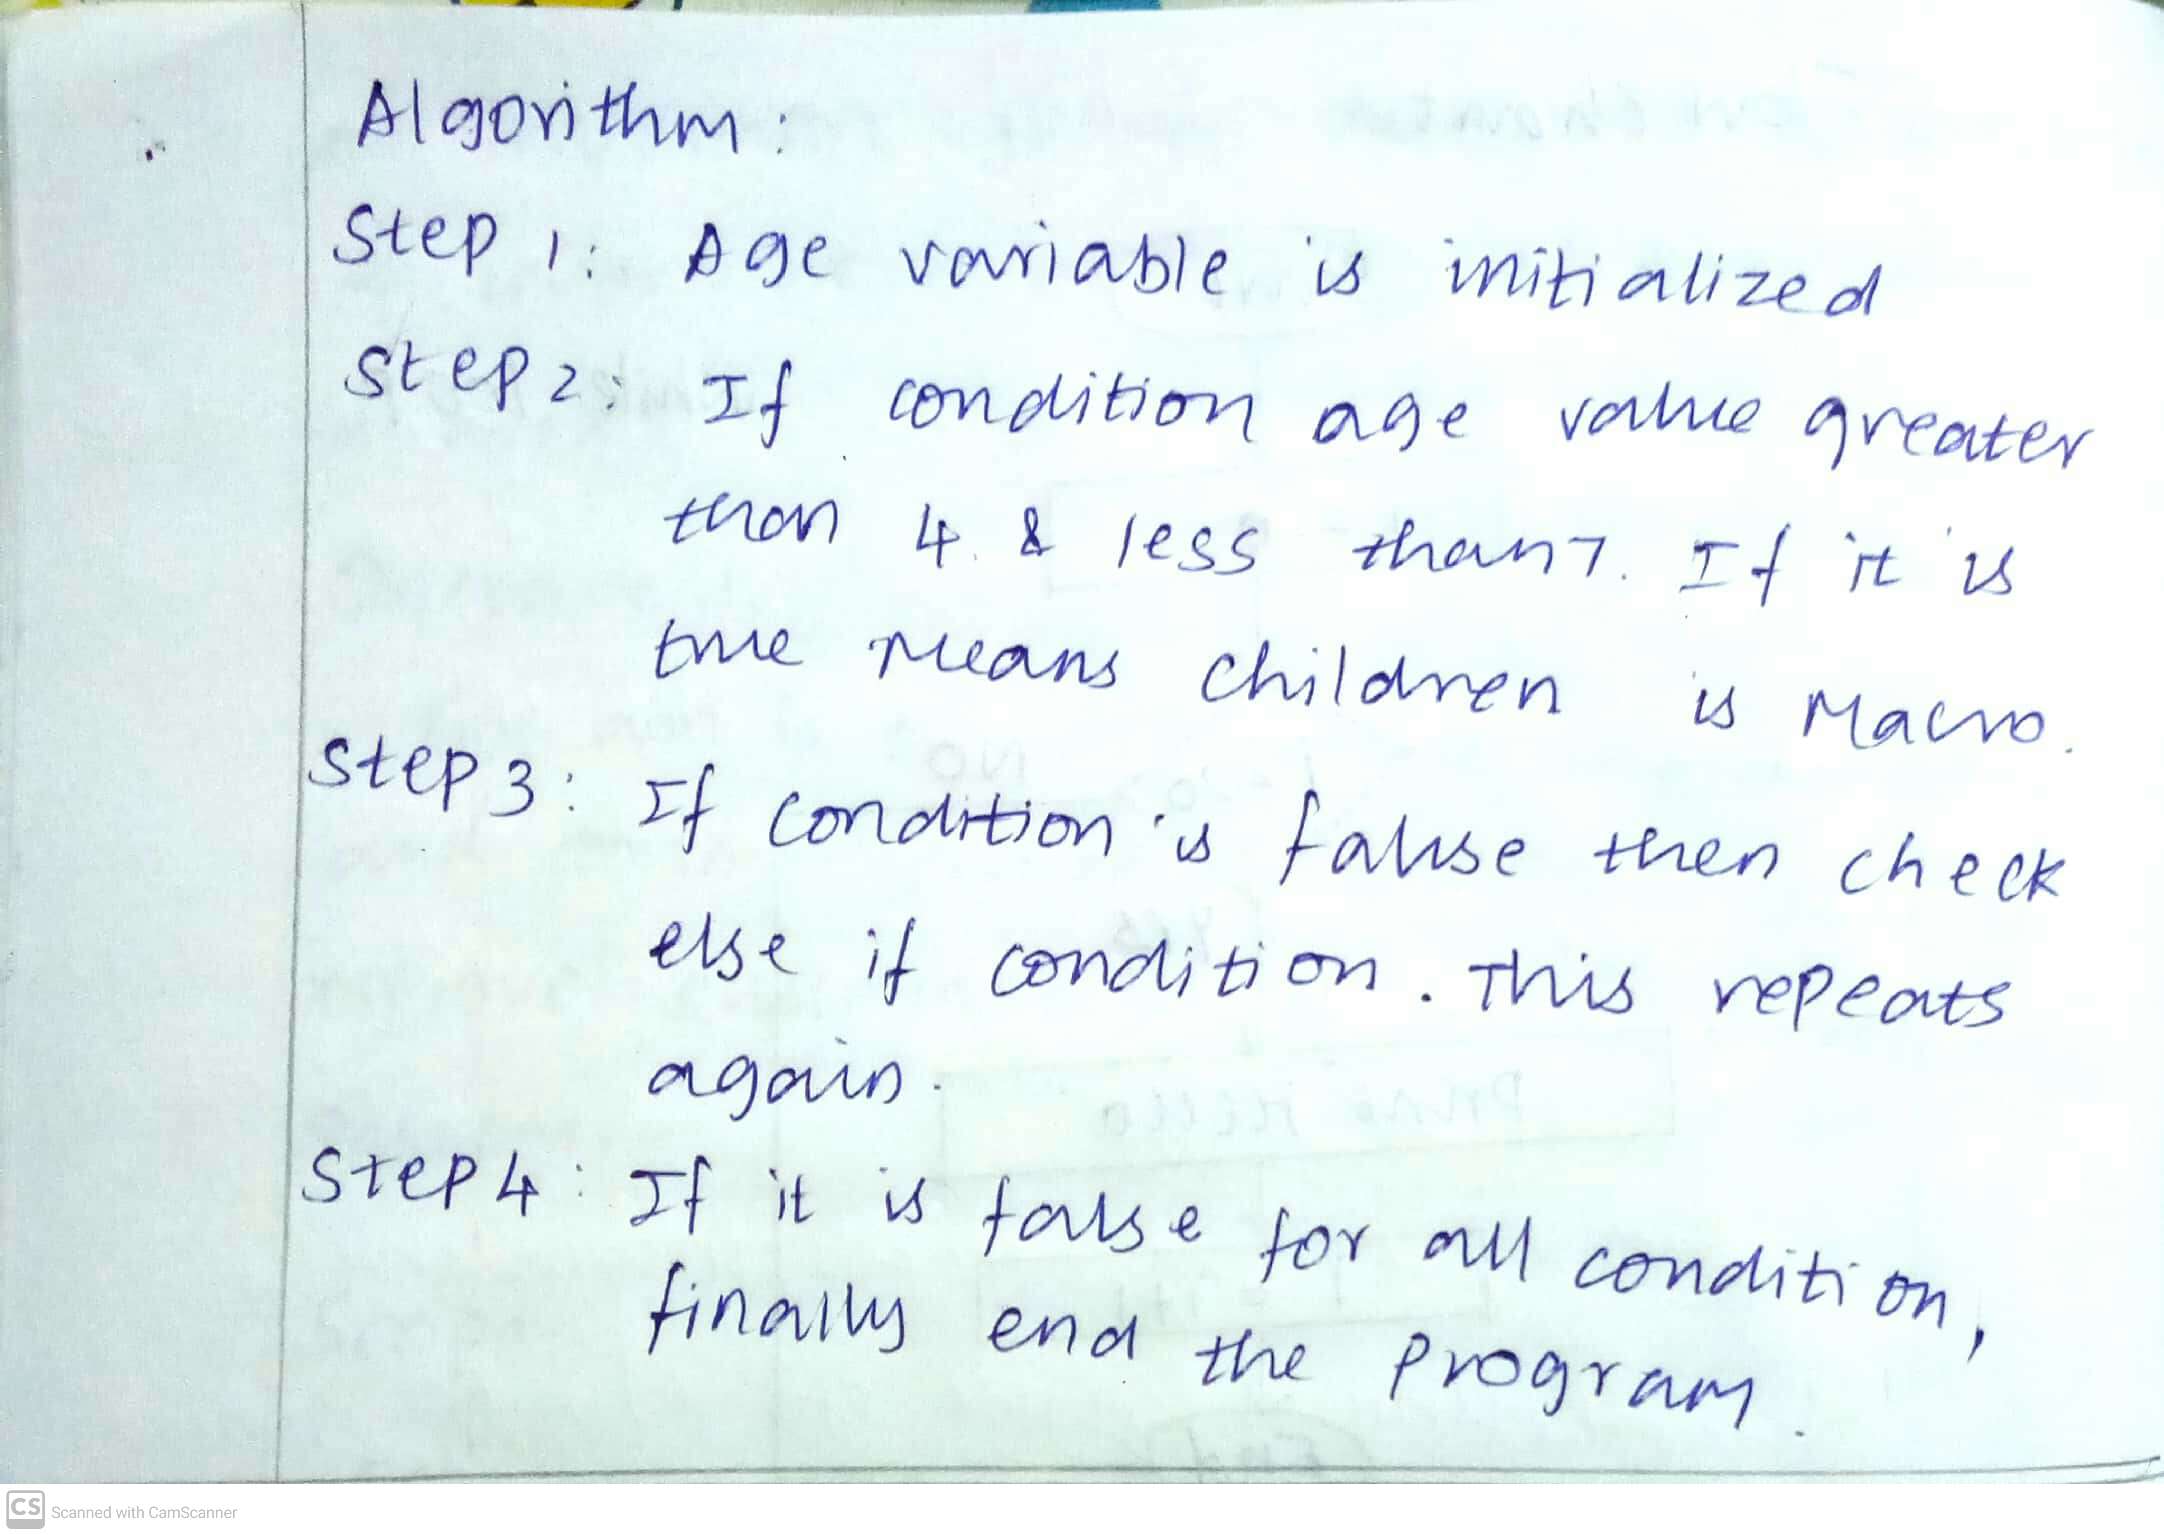 Algorithm:
Step 1: Age variable is initialized
Step 2: If condition age value greater
than 4 & less than 7. If it is
true Means children is Macro.
Step 3: If condition is false then check
else if condition. This repeats
again.
Step 4: If it is false for all condition,
finally end the program.
CS Scanned with CamScanner